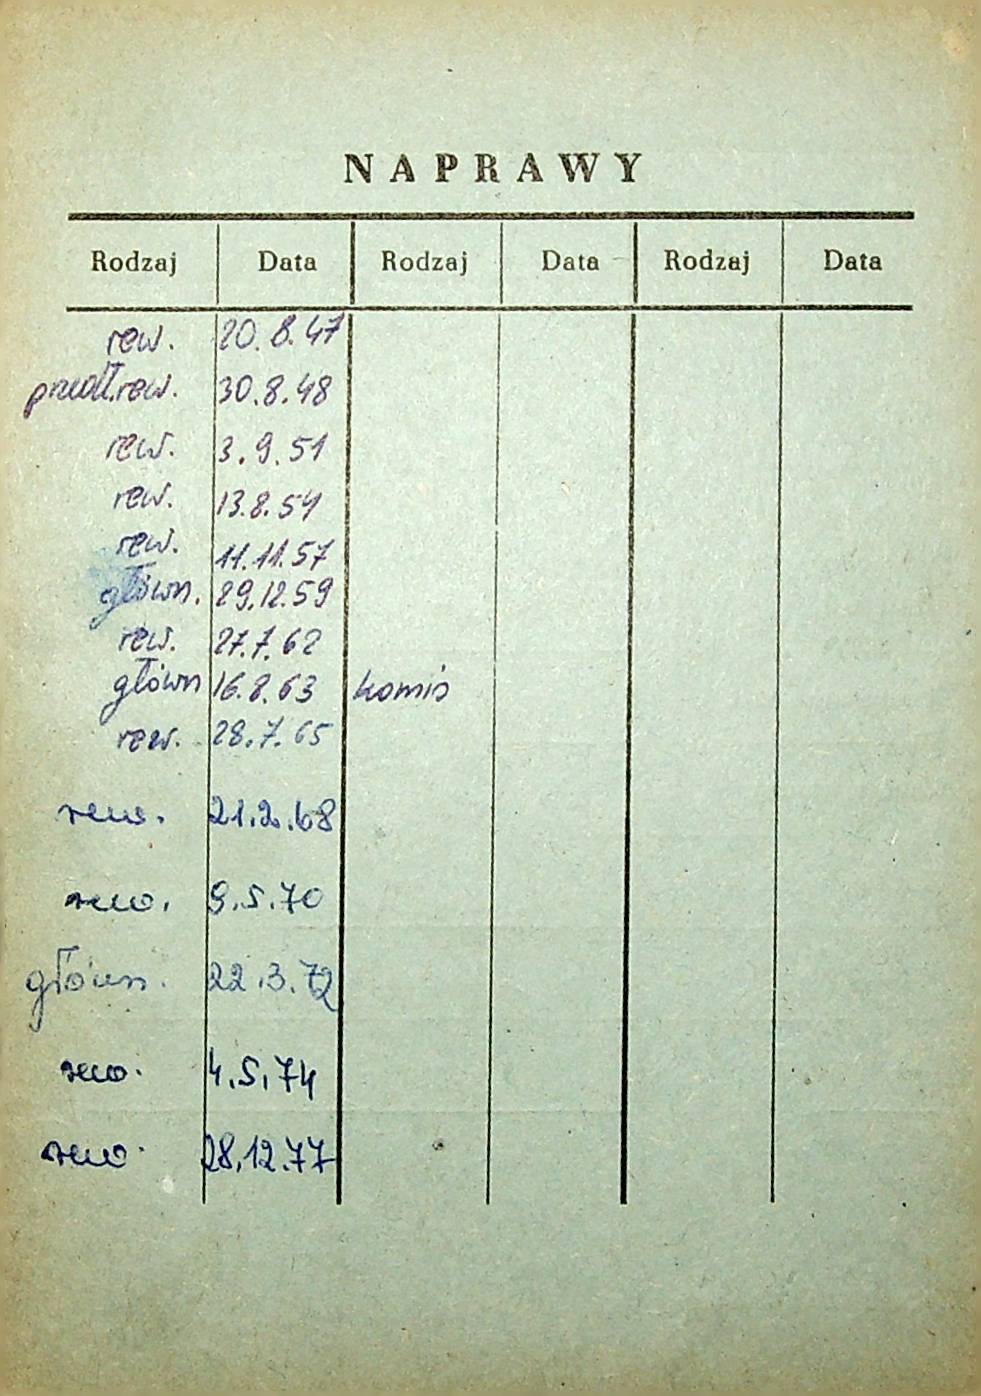 NAPRAWY
Rodzaj Data Rodzaj Data Rodzaj Data
rew. 20.8.47
przedł.rew. 30.8.48
rew. 3.9.51
rew. 13.8.54
rew. 11.11.57
główn. 29.12.59
rew. 27.7.62
główn 16.8.63 komis
rew. 28.7.65
rew. 21.2.68
rew. 9.5.70
główn. 22.3.72
rew. 4.5.74
rew. 28.12.77